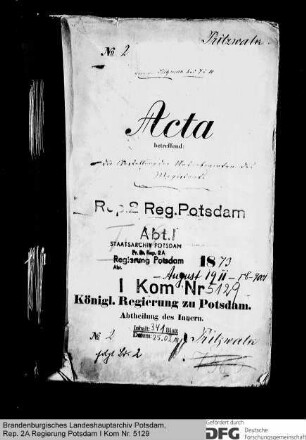 No 2
Pritzwalk
Acta
betreffend:
die Bestellung der Unterbeamten des
Magistrats
Rep. 2 Reg. Potsdam
Abt. I
STAATSARCHIV POTSDAM
Pr. Br. Rep. 2A
Regierung Potsdam
Abt.
1873
August 1911
I Kom Nr 5129
Königl. Regierung zu Potsdam.
Abtheilung des Innern.
Inhalt: 341 Blatt
Datum:
No 2
Pritzwalk
folgt No 2
Brandenburgisches Landeshauptarchiv Potsdam,
Rep. 2A Regierung Potsdam I Kom Nr. 5129
Gefördert durch
DFG
Deutsche
Forschungsgemeinschaft